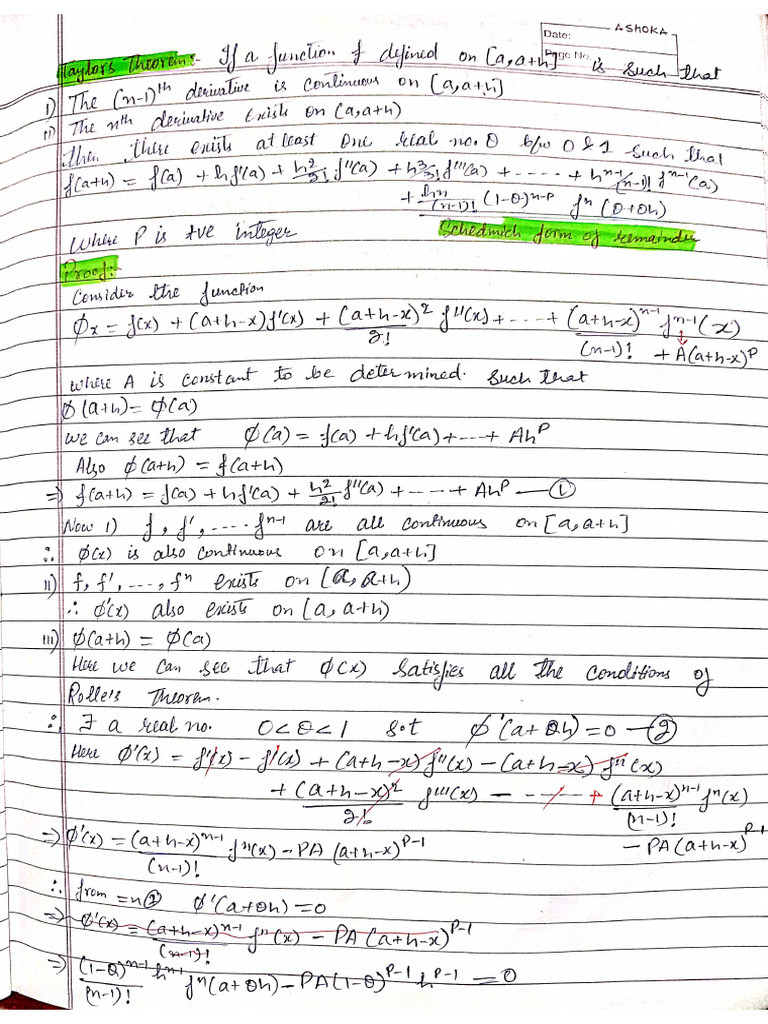 Date: ASHOKA
Page No.
Taylor's Theorem:- If a function f defined on [a, a+h] is such that
i) The (n-1)th derivative is continuous on [a, a+h]
ii) The nth derivative exists on (a, a+h)
then there exists at least one real no. θ b/w 0 & 1 such that
f(a+h) = f(a) + hf'(a) + h²/2! f''(a) + h³/3! f'''(a) + ----- + hⁿ⁻¹/(n-1)! fⁿ⁻¹(a)
+ hⁿ/(n-1)! (1-θ)ⁿ⁻ᵖ fⁿ(θ+θh)
where P is +ve integer Schedmich form of remainder
Proof:-
Consider the function
Øx = f(x) + (a+h-x)f'(x) + (a+h-x)²/2! f''(x) + --- + (a+h-x)ⁿ⁻¹/(n-1)! fⁿ⁻¹(x)
+ A(a+h-x)ᵖ
where A is constant to be determined. Such that
Ø(a+h) = Ø(a)
we can see that Ø(a) = f(a) + hf'(a) + --- + Ahᵖ
Also Ø(a+h) = f(a+h)
⇒ f(a+h) = f(a) + hf'(a) + h²/2! f''(a) + ---- + Ahᵖ —①
Now i) f, f', ---- fⁿ⁻¹ are all continuous on [a, a+h]
∴ Ø(x) is also continuous on [a, a+h]
ii) f, f', ---, fⁿ exists on (a, a+h)
∴ Ø'(x) also exists on (a, a+h)
iii) Ø(a+h) = Ø(a)
Here we can see that Ø(x) satisfies all the conditions of
Rolle's Theorem.
∴ ∃ a real no. 0<θ<1 s.t Ø'(a+θh)=0 —②
Here Ø'(x) = f'(x) - f'(x) + (a+h-x)f''(x) - (a+h-x)f''(x)
+ (a+h-x)²/2! f'''(x) - ---- + (a+h-x)ⁿ⁻¹/(n-1)! fⁿ(x)
- PA(a+h-x)ᵖ⁻¹
⇒ Ø'(x) = (a+h-x)ⁿ⁻¹/(n-1)! fⁿ(x) - PA (a+h-x)ᵖ⁻¹
∴ from =n② Ø'(a+θh)=0
⇒ Ø'(x) = (a+h-x)ⁿ⁻¹/(n-1)! fⁿ(x) - PA(a+h-x)ᵖ⁻¹
⇒ (1-θ)ⁿ⁻¹hⁿ⁻¹/(n-1)! fⁿ(a+θh) - PA(1-θ)ᵖ⁻¹ hᵖ⁻¹ = 0